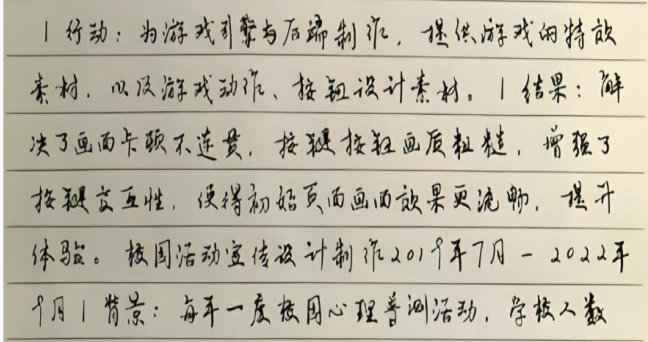 1 行动：为游戏引擎与后端制作，提供游戏的特效
素材，以及游戏动作、按钮设计素材。1 结果：解
决了画面卡顿不连贯，按键按钮画质粗糙，增强了
按键交互性，使得初始页面画面效果更流畅，提升
体验。校园活动宣传设计制作2019年7月-2022年
9月1 背景：每年一度校园心理普测活动，学校人数